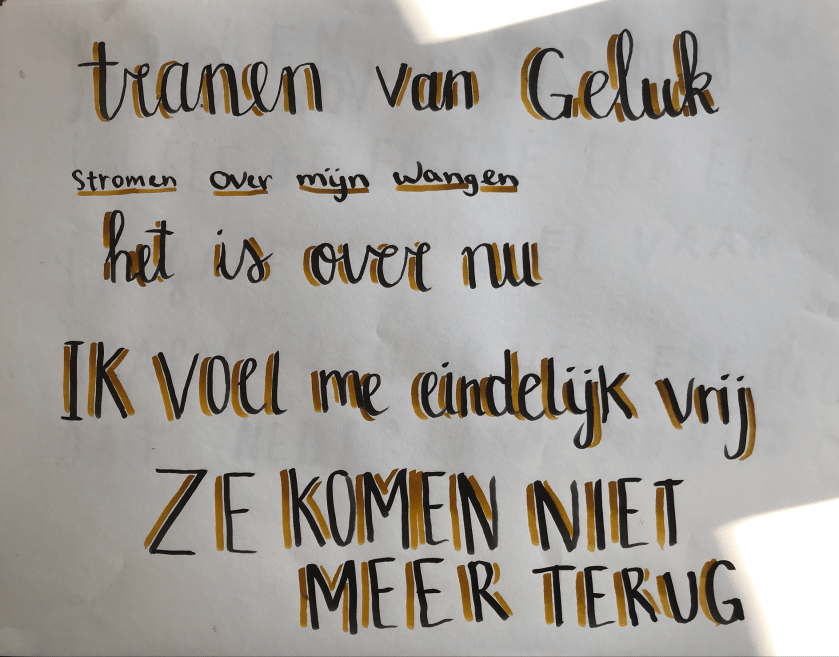 tranen van Geluk
Stromen over mijn wangen
het is over nu
IK VOEL me eindelijk vrij
ZE KOMEN NIET
MEER TERUG